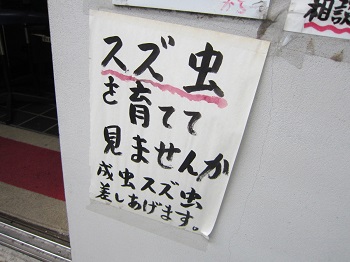 スズ虫
を育てて
見ませんか
成虫スズ虫
差しあげます。
相談